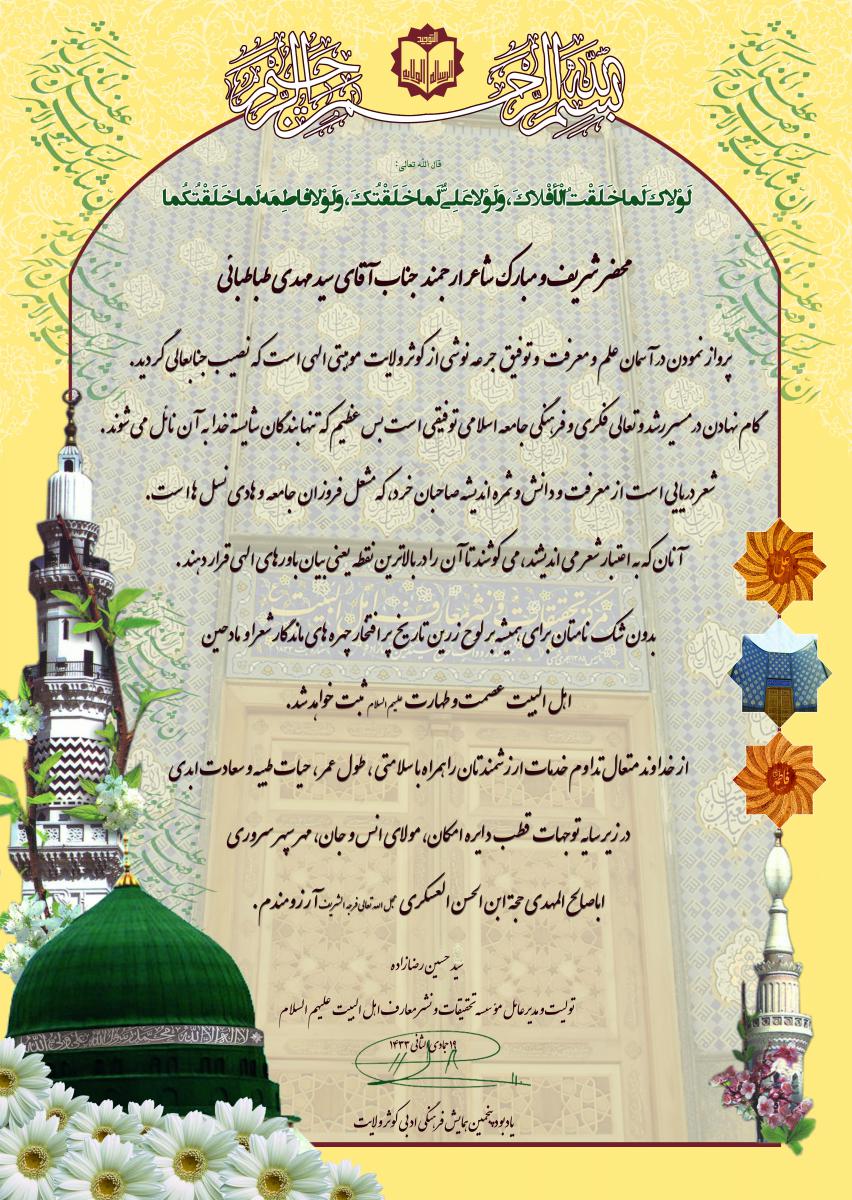 بسم الله الرحمن الرحیم
التوحید
الرساله الولایه
قال الله تعالی:
لَوْلاكَ لَما خَلَقْتُ الْأَفْلاكَ، وَلَوْلا عَلِیٌّ لَما خَلَقْتُكَ، وَلَوْلا فاطِمَه لَما خَلَقْتُكُما
محضر شریف و مبارک شاعر ارجمند جناب آقای سید مهدی طباطبائی
پرواز نمودن در آسمان علم و معرفت و توفیق جرعه نوشی از کوثر ولایت موهبتی الهی است که نصیب جنابعالی گردید.
گام نهادن در مسیر رشد و تعالی فکری و فرهنگی جامعه اسلامی توفیقی است بس عظیم که تنها بندگان شایسته خدا به آن نائل می شوند.
شعر دریایی است از معرفت و دانش و ثمره اندیشه صاحبان خرد، که مشعل فروزان جامعه و هادی نسل ها است.
آنان که به اعتبار شعر می اندیشند، می کوشند تا آن را در بالاترین نقطه یعنی بیان باورهای الهی قرار دهند.
بدون شک نامتان برای همیشه بر لوح زرین تاریخ پر افتخار چهره های ماندگار شعرا و مادحین
اهل البیت عصمت و طهارت علیهم السلام ثبت خواهد شد.
از خداوند متعال تداوم خدمات ارزشمندتان را همراه با سلامتی، طول عمر، حیات طیبه و سعادت ابدی
در زیر سایه توجهات قطب دایره امکان، مولای انس و جان، مهر سپهر سروری
اباصالح المهدی حجة ابن الحسن العسکری عجل الله تعالی فرجه الشریف آرزومندم.
سید حسین رضازاده
تولیت و مدیر عامل مؤسسه تحقیقات و نشر معارف اهل البیت علیهم السلام
۱۹ جمادی الثانی ۱۴۳۳
یادبود پنجمین همایش فرهنگی ادبی کوثر ولایت
علی
فاطمه